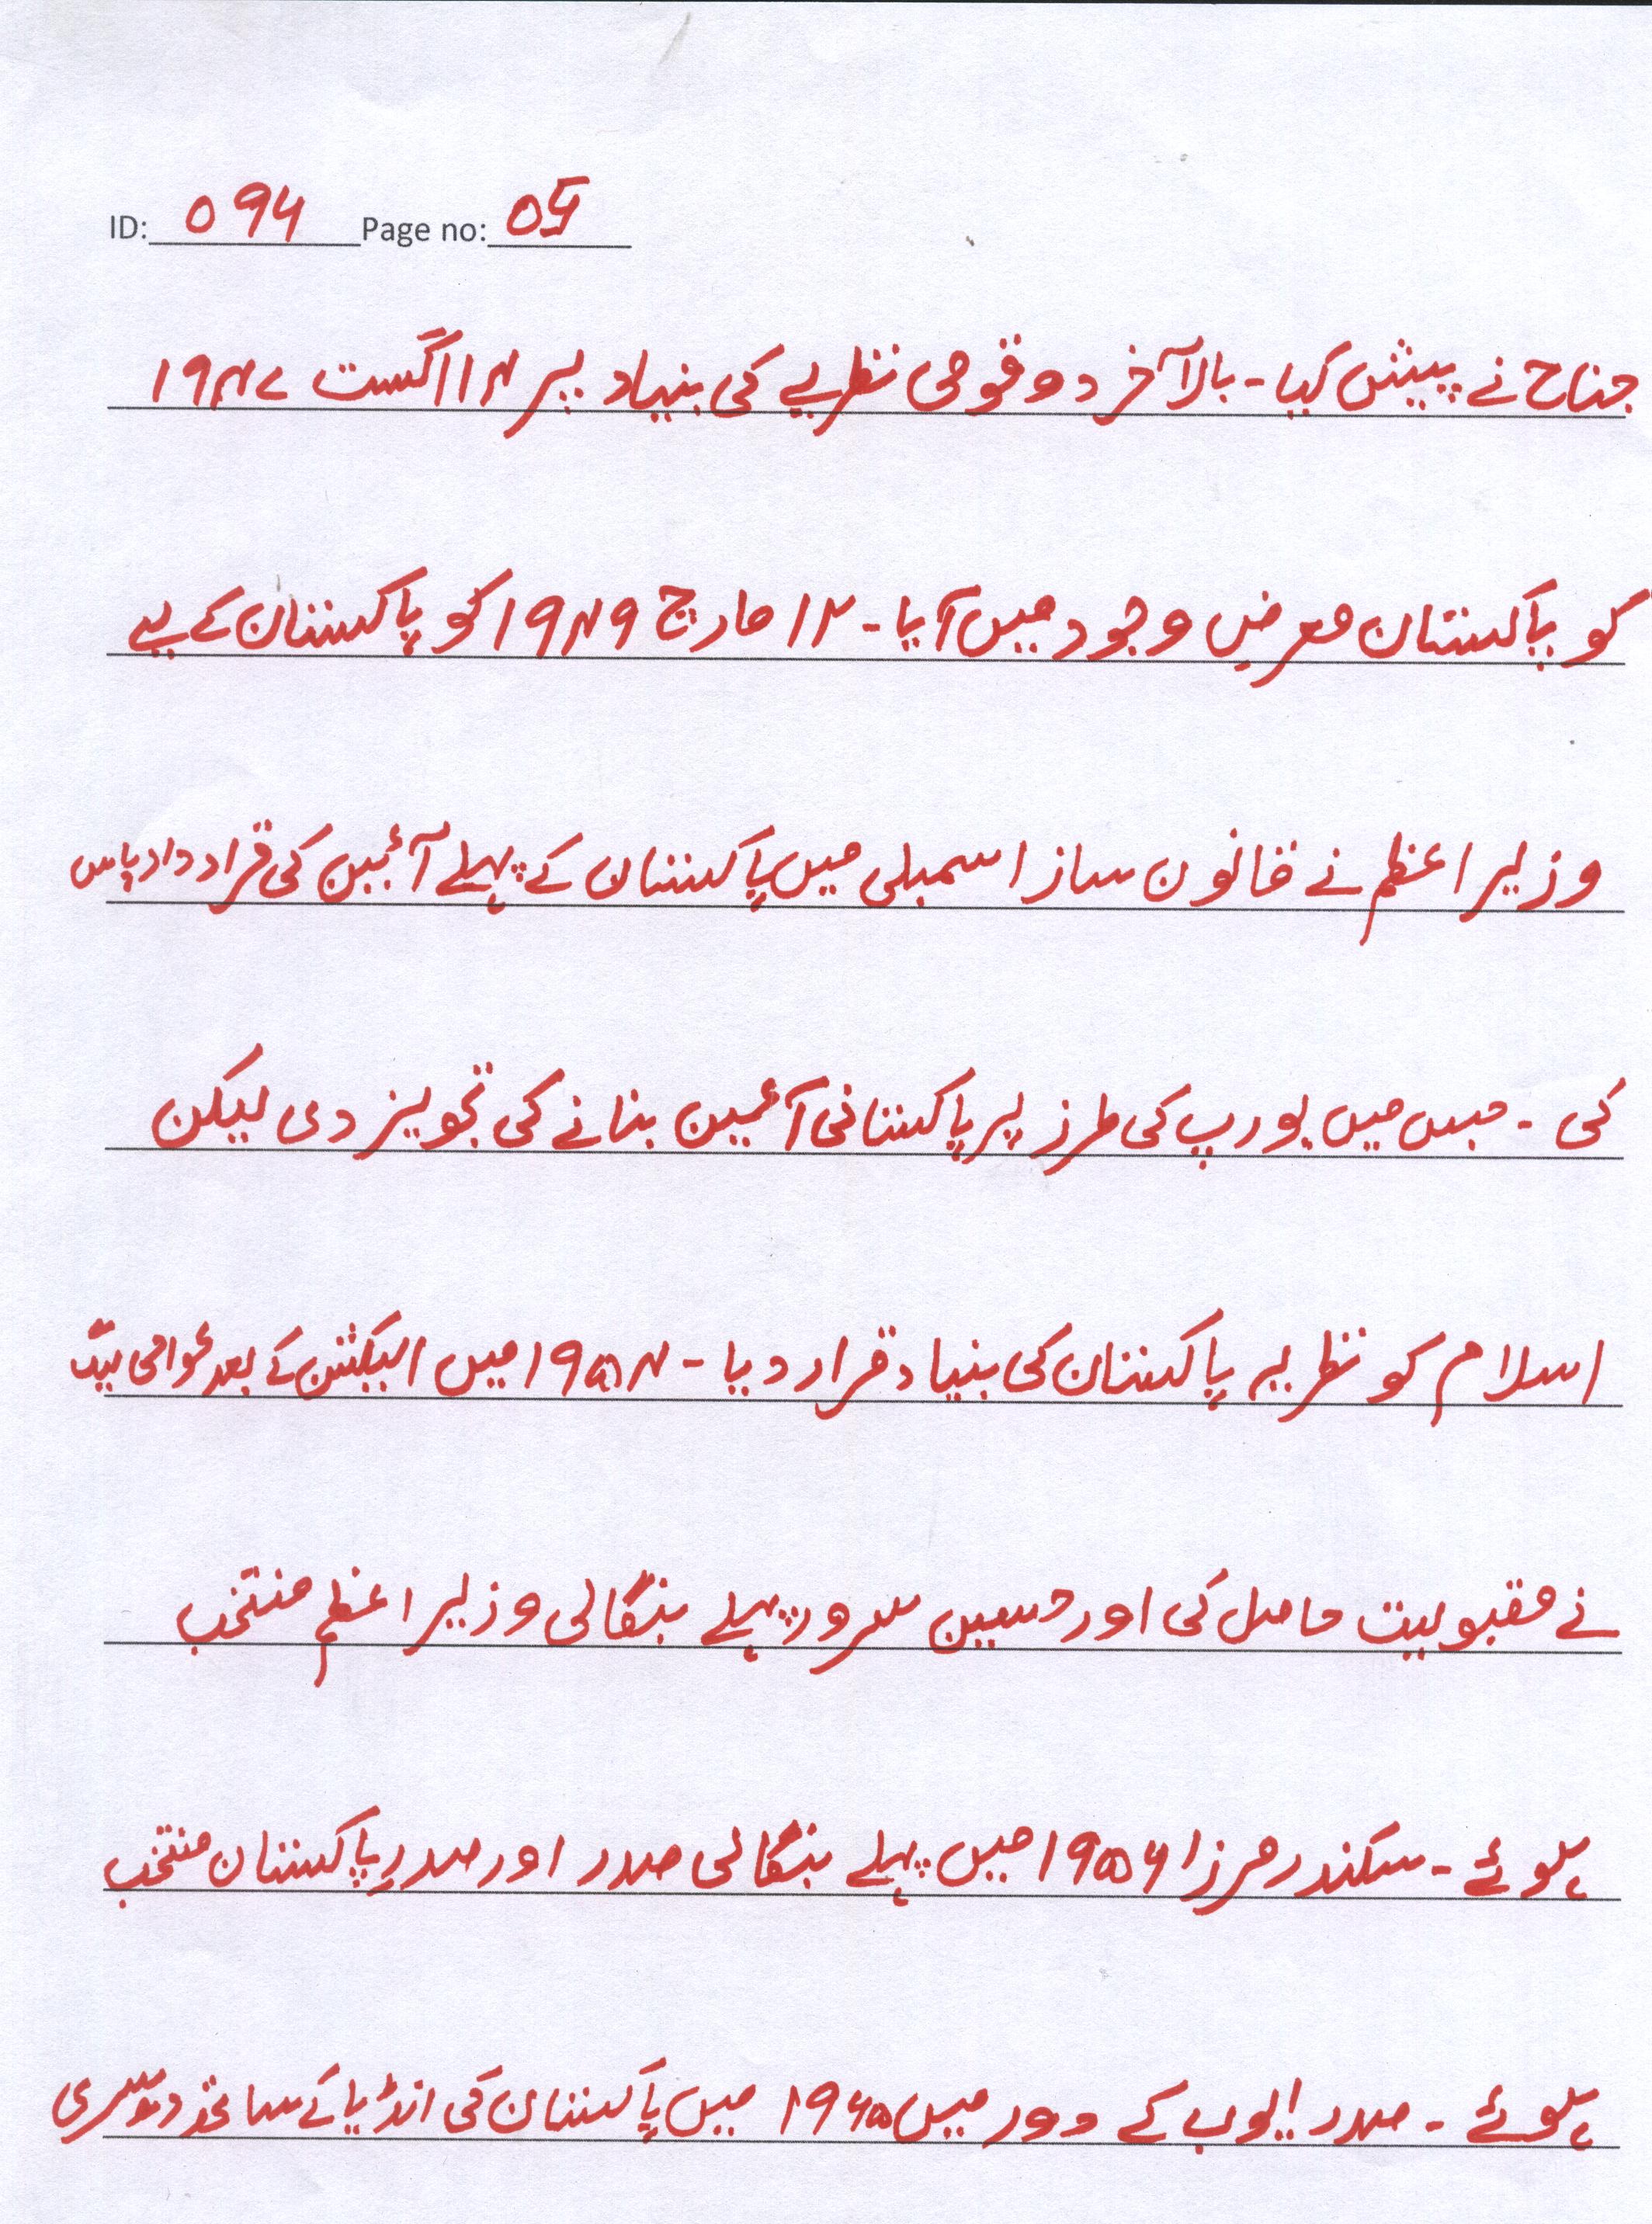 ID: 094 Page no: 05
جناح نے پیش کیا۔ بالآخر دو قومی نظریے کی بنیاد پر ۱۴ اگست ۱۹۴۷
کو پاکستان معرضِ وجود میں آیا۔ ۱۲ مارچ ۱۹۴۹ کو پاکستان کے لیے
وزیر اعظم نے قانون ساز اسمبلی میں پاکستان کے پہلے آئین کی قرارداد پاس
کی۔ جس میں یورپ کی طرز پر پاکستانی آئین بنانے کی تجویز دی لیکن
اسلام کو نظریہ پاکستان کی بنیاد قرار دیا۔ ۱۹۵۴ میں الیکشن کے بعد عوامی لیگ
نے مقبولیت حاصل کی اور حسین سرور پہلے بنگالی وزیر اعظم منتخب
ہوئے۔ سکندر مرزا ۱۹۵۶ میں پہلے بنگالی صدر اور صدرِ پاکستان منتخب
ہوئے۔ صدر ایوب کے دور میں ۱۹۶۵ میں پاکستان کی انڈیا کے ساتھ دوسری